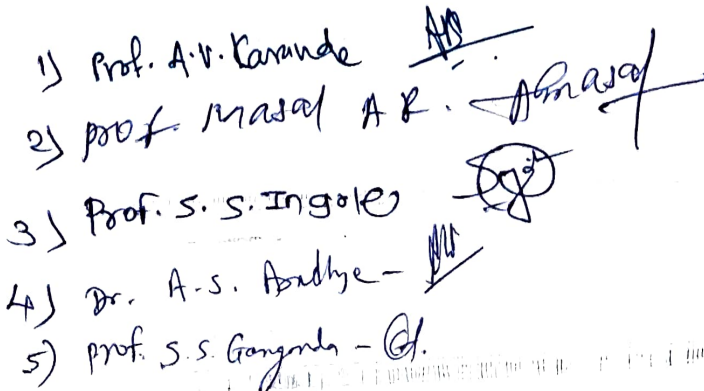 1) Prof. A.V. Karande
2) prof. Masal A R.
3) Prof. S. S. Ingole
4) Dr. A.S. -
5) prof. S.S. Gangonda -